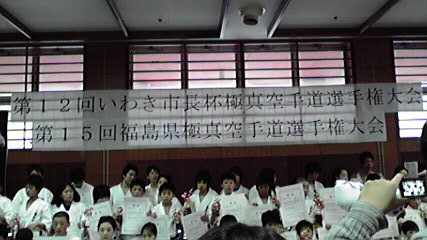 第１２回いわき市長杯極真空手道選手権大会
第１５回福島県極真空手道選手権大会